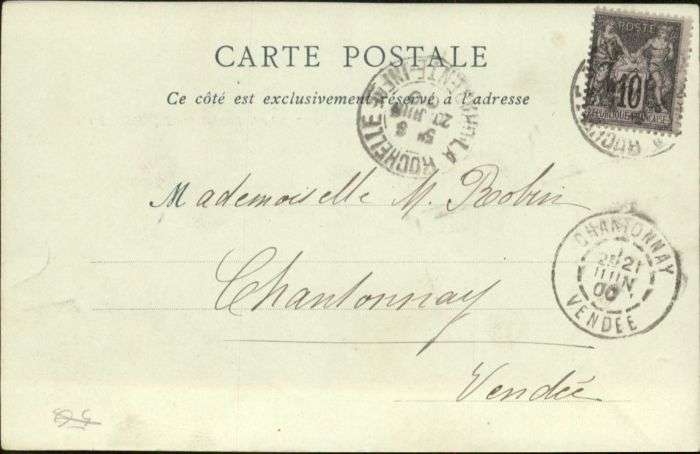 CARTE POSTALE
Ce côté est exclusivement réservé à l'adresse
POSTE
10
RÉPUBLIQUE FRANÇAISE
LA ROCHELLE
JUIN
Mademoiselle M. Robin
Chantonnay
Vendée
CHANTONNAY
21
JUIN
00
VENDÉE